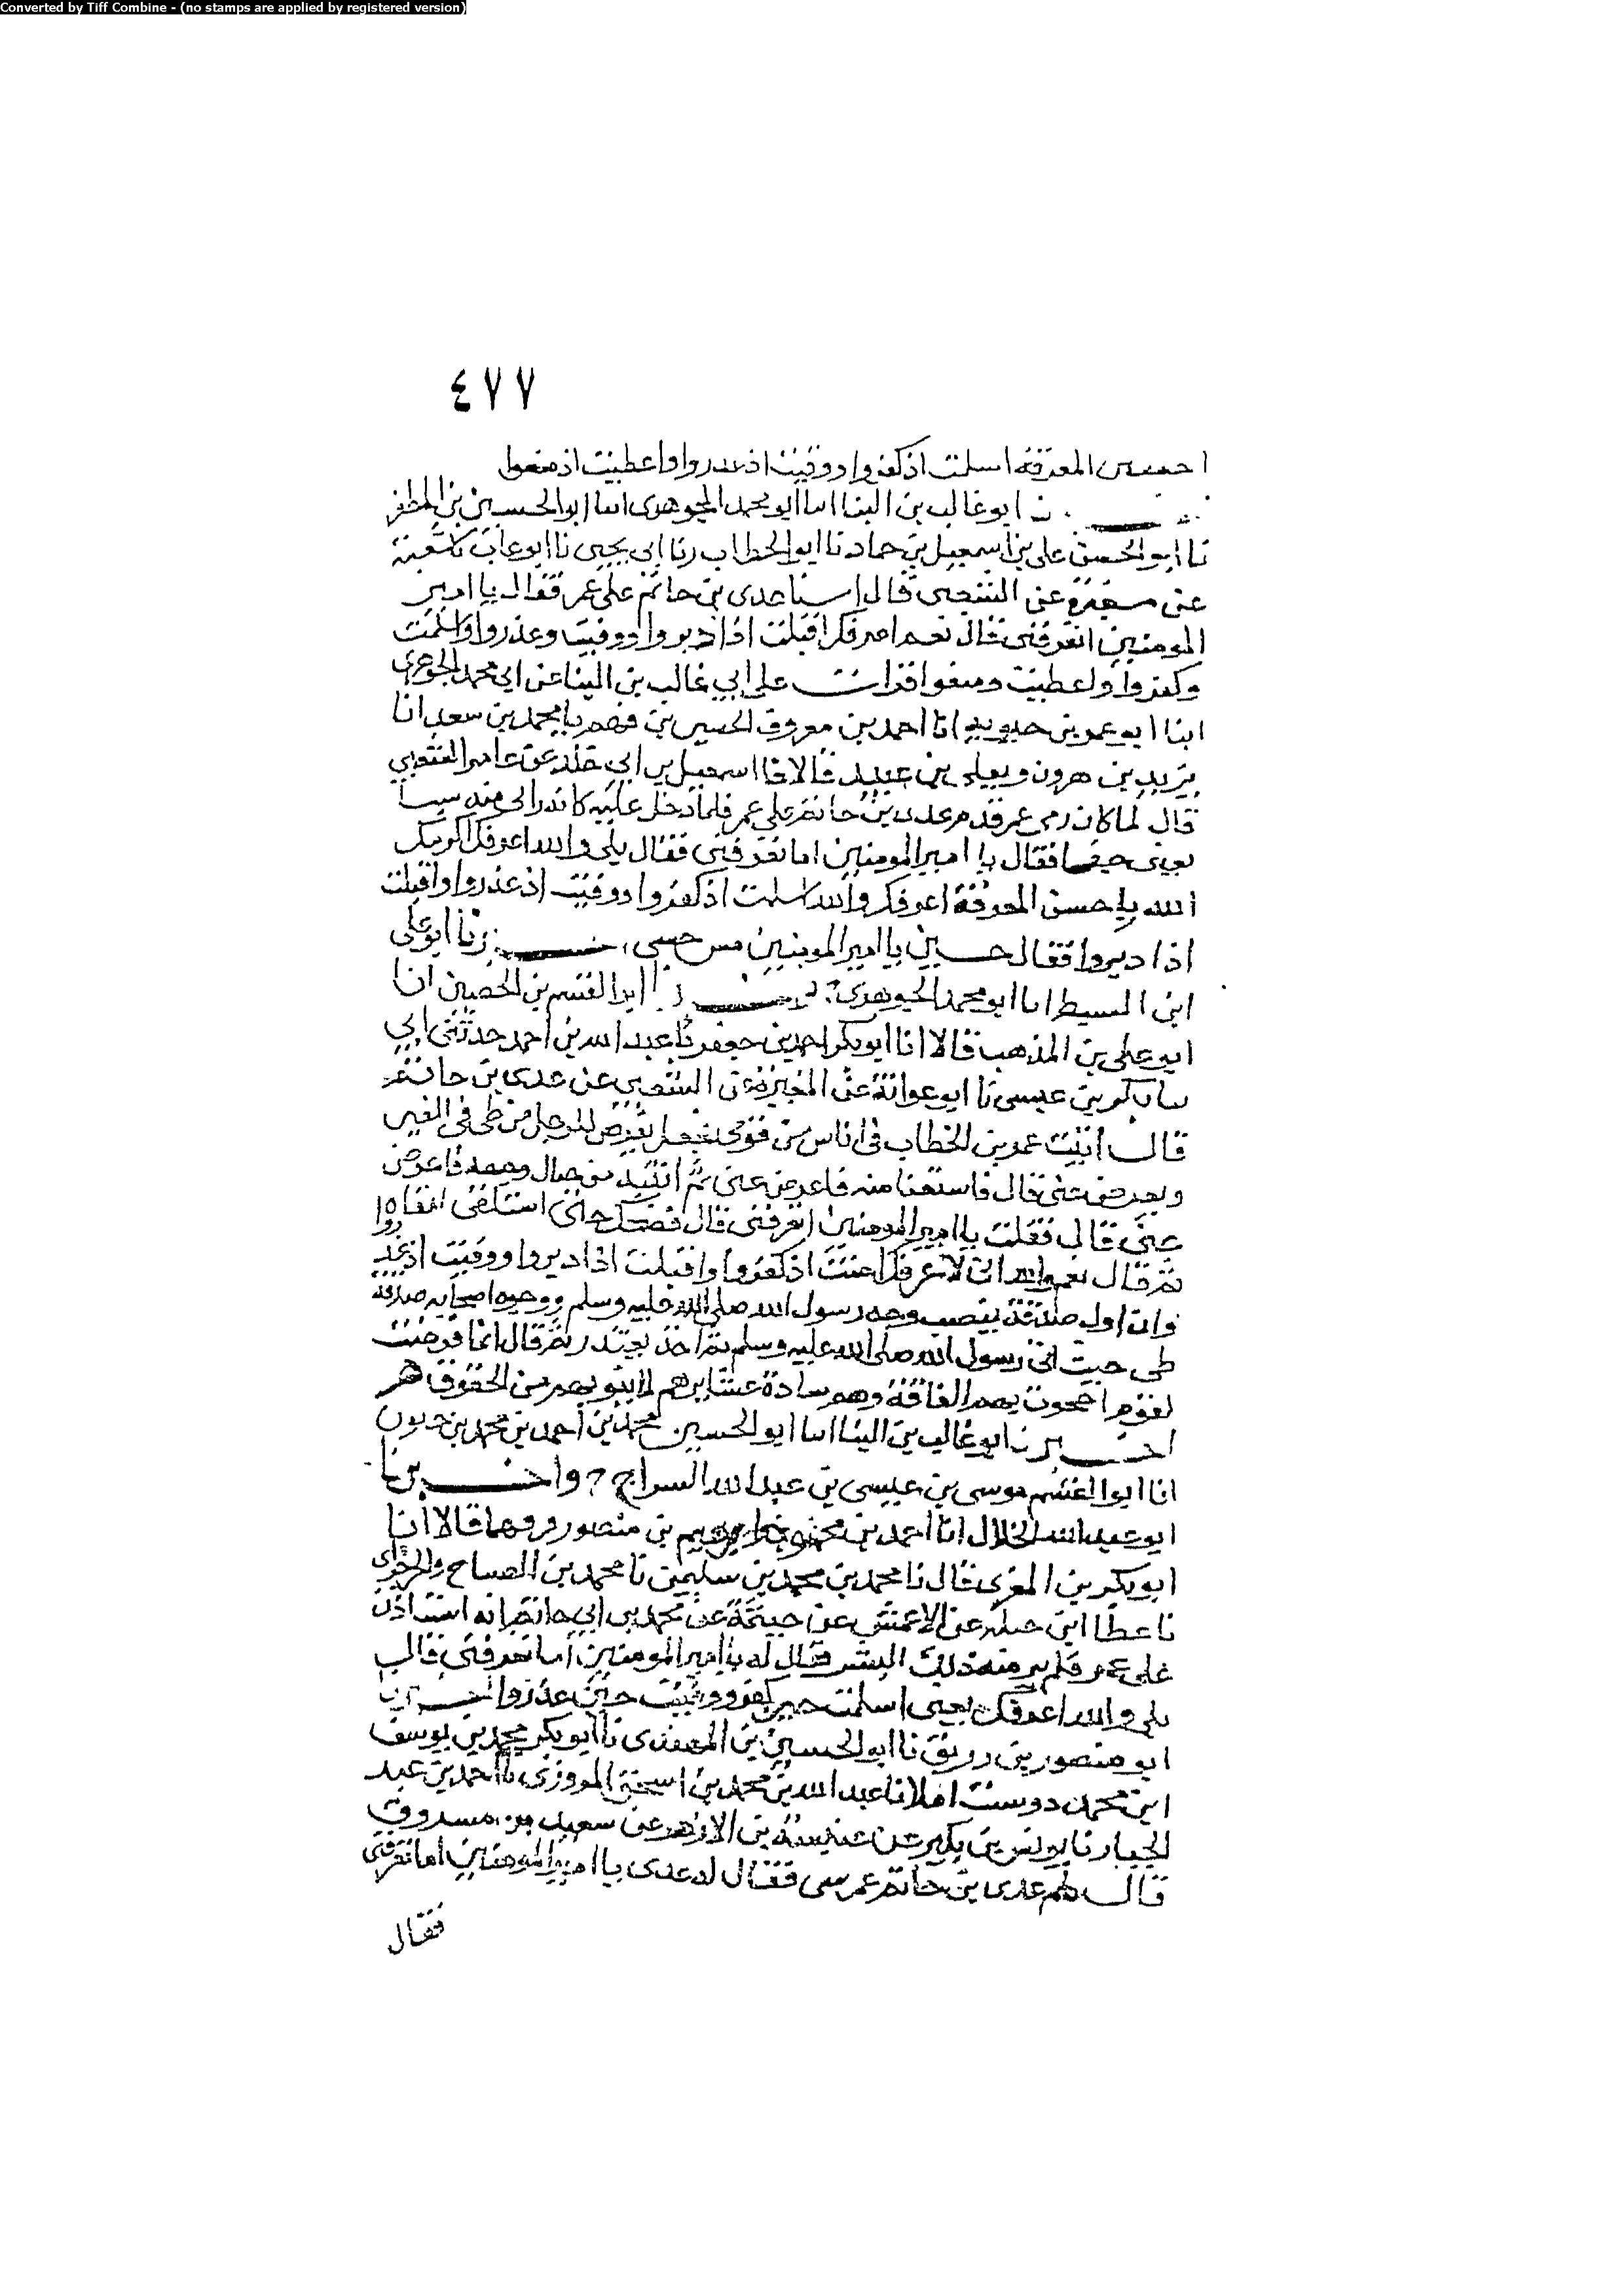 Converted by Tiff Combine - (no stamps are applied by registered version)
٤٧٧
المعرفة اسلمت اذ كفروا ووفيت اذ غدروا واعطيت اذ منعوا
ابو غالب بن البنا انا ابو محمد الجوهري انا ابو الحسين بن المظفر
نا ابو الحسن علي بن اسمعيل بن حماد نا ابو الخطاب زنا ابي يحيى نا ابو عتاب نا شعبة
عن مغيرة عن الشعبي قال عدي بن حاتم على عمر فقال يا امير
المومنين اتعرفني قال نعم اقبلت اذ ادبروا ووفيت وغدروا واسلمت
وكفروا واعطيت ومنعوا قرات على ابي غالب بن البنا عن ابي محمد الجوهري
ابنا ابو عمر بن حيويه انا احمد بن معروف الحسين بن فهم نا محمد بن سعد انا
يزيد بن هرون ويعلى بن عبيد قالا نا اسمعيل بن ابي خلد عن عامر الشعبي
قال لما كان زمن عمر قدم عدي بن حاتم على عمر فلما دخل عليه كانه راى منه سيا
يعني جفا فقال يا امير المومنين اما تعرفني فقال بلى والله اعرفك اكرمك
الله باحسن المعرفة اعرفك والله اسلمت اذ كفروا ووفيت اذ غدروا واقبلت
اذ ادبروا فقال حسبي يا امير المومنين حسبي ابو علي
ابن السبط انا ابو محمد الجوهري ابو القسم بن الحصين انا
ابو علي بن المذهب قالا انا ابو بكر احمد بن جعفر نا عبد الله بن احمد حدثني ابي
نا بكر بن عيسى نا ابو عوانة عن المغيرة عن الشعبي عن عدي بن حاتم
قال اتيت عمر بن الخطاب في اناس من قومي فجعل يفرض للرجل من طي في الفين
ويعرض عني قال فاستقبلته فاعرض عني ثم اتيته من حيال وجهه فاعرض
عني قال فقلت يا امير المومنين اتعرفني قال فضحك حتى استلقى لقفاه
ثم قال نعم والله اني لاعرفك امنت اذ كفروا واقبلت اذ ادبروا ووفيت اذ غدروا
وان اول صدقة بيضت وجه رسول الله صلى الله عليه وسلم ووجوه اصحابه صدقة
طي جيت الى رسول الله صلى الله عليه وسلم ثم اخذ يعتذر ثم قال انما فرضت
لقوم اجحفت بهم الفاقة وهم سادة عشايرهم لما ينوبهم من الحقوق
ابو غالب بن البنا انا ابو الحسين محمد بن احمد بن محمد بن حسنون
انا ابو القسم موسى بن عيسى بن عبد الله السراج ح واخبرنا
ابو عبد الله الخلال انا احمد بن محمود وابرهيم بن منصور قالا انا
ابو بكر بن المقري قال نا محمد بن محمد بن سليمن نا محمد بن الصباح
نا عطا ابن جبلة عن الاعمش عن خيثمة عن ابي حاتم انه استاذن
على عمر فلم ير منه ذلك البشر فقال له يا امير المومنين اما تعرفني قال
بلى والله اعرفك يعني اسلمت حين كفروا ووفيت حين غدروا اخبرنا
ابو منصور بن زريق نا ابو الحسين بن المهتدي نا ابو بكر محمد بن يوسف
ابن محمد دوست املا نا عبد الله بن محمد بن اسحق المروزي نا احمد بن عبد
الجبار نا يونس بن بكير عن عنبسة بن الازهر عن سعيد بن مسروق
قال عدي بن حاتم عمر فقال له عدي يا امير المومنين اما تعرفني
فقال